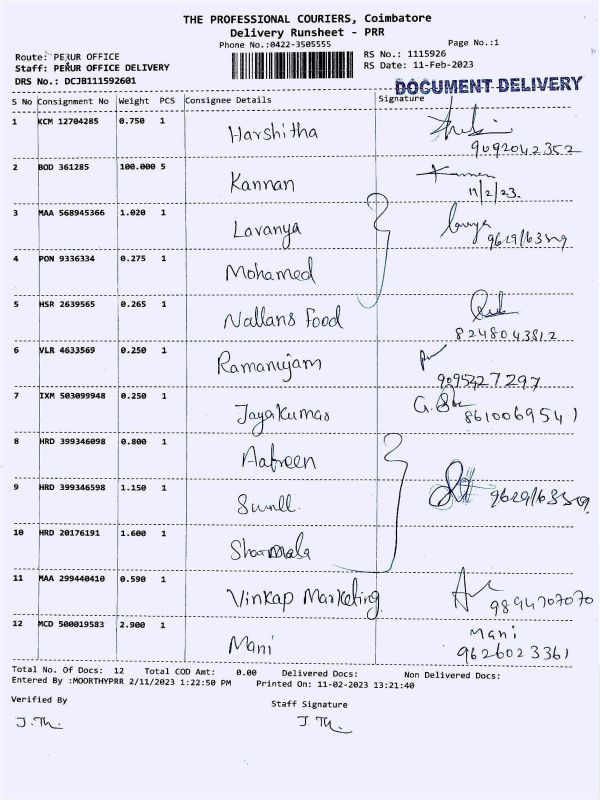 THE PROFESSIONAL COURIERS, Coimbatore
Delivery Runsheet - PRR
Phone No.:0422-3505555
Page No.:1
Route: PERUR OFFICE
RS No.: 1115926
Staff: PERUR OFFICE DELIVERY
RS Date: 11-Feb-2023
DRS No.: DCJB111592601
DOCUMENT DELIVERY
S No Consignment No Weight PCS Consignee Details Signature
1 KCM 12704285 0.750 1 Harshitha
9092042352
2 BOD 361285 100.000 5 Kannan
11/2/23.
3 MAA 568945366 1.020 1 Lavanya
4 PON 9336334 0.275 1 Mohamed
5 HSR 2639565 0.265 1 Nallans Food
8248043812
6 VLR 4633569 0.250 1 Ramanujam
9095427297
7 IXM 503099948 0.250 1 Jayakumar
8610069541
8 HRD 399346098 0.800 1 Aafreen
9 HRD 399346598 1.150 1
10 HRD 20176191 1.600 1 Sharmala
11 MAA 299440410 0.590 1 Vinkap Marketing
9894707070
12 MCD 500019583 2.900 1 Mani Mani
9626023361
Total No. Of Docs: 12 Total COD Amt: 0.00 Delivered Docs: Non Delivered Docs:
Entered By :MOORTHYPRR 2/11/2023 1:22:50 PM Printed On: 11-02-2023 13:21:40
Verified By Staff Signature
J. Th. J. Th.